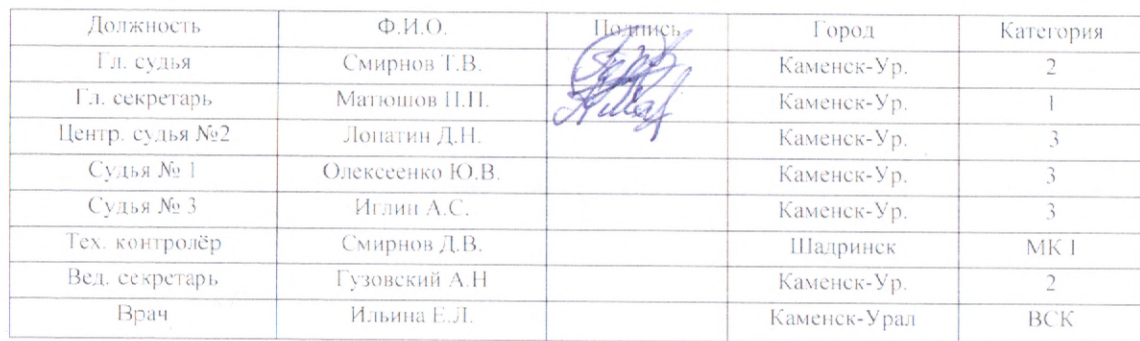 Должность Ф.И.О. Подпись Город Категория
Гл. судья Смирнов Т.В. Каменск-Ур. 2
Гл. секретарь Матюшов П.П. Каменск-Ур. 1
Центр. судья №2 Лопатин Д.Н. Каменск-Ур. 3
Судья № 1 Олексеенко Ю.В. Каменск-Ур. 3
Судья № 3 Иглин А.С. Каменск-Ур. 3
Тех. контролёр Смирнов Д.В. Шадринск МК 1
Вед. секретарь Гузовский А.Н Каменск-Ур. 2
Врач Ильина Е.Л. Каменск-Урал ВСК